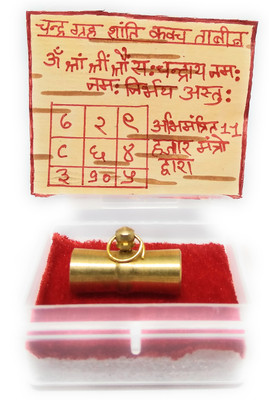 चन्द्र ग्रह शांति कवच ताबीज
ॐ श्रां श्रीं श्रौं सः चन्द्राय नमः
नमः निर्भय अस्तुः
७ २ ९
८ ६ ४
३ १० ५
अभिमंत्रित 11
हजार मंत्रो
द्वारा